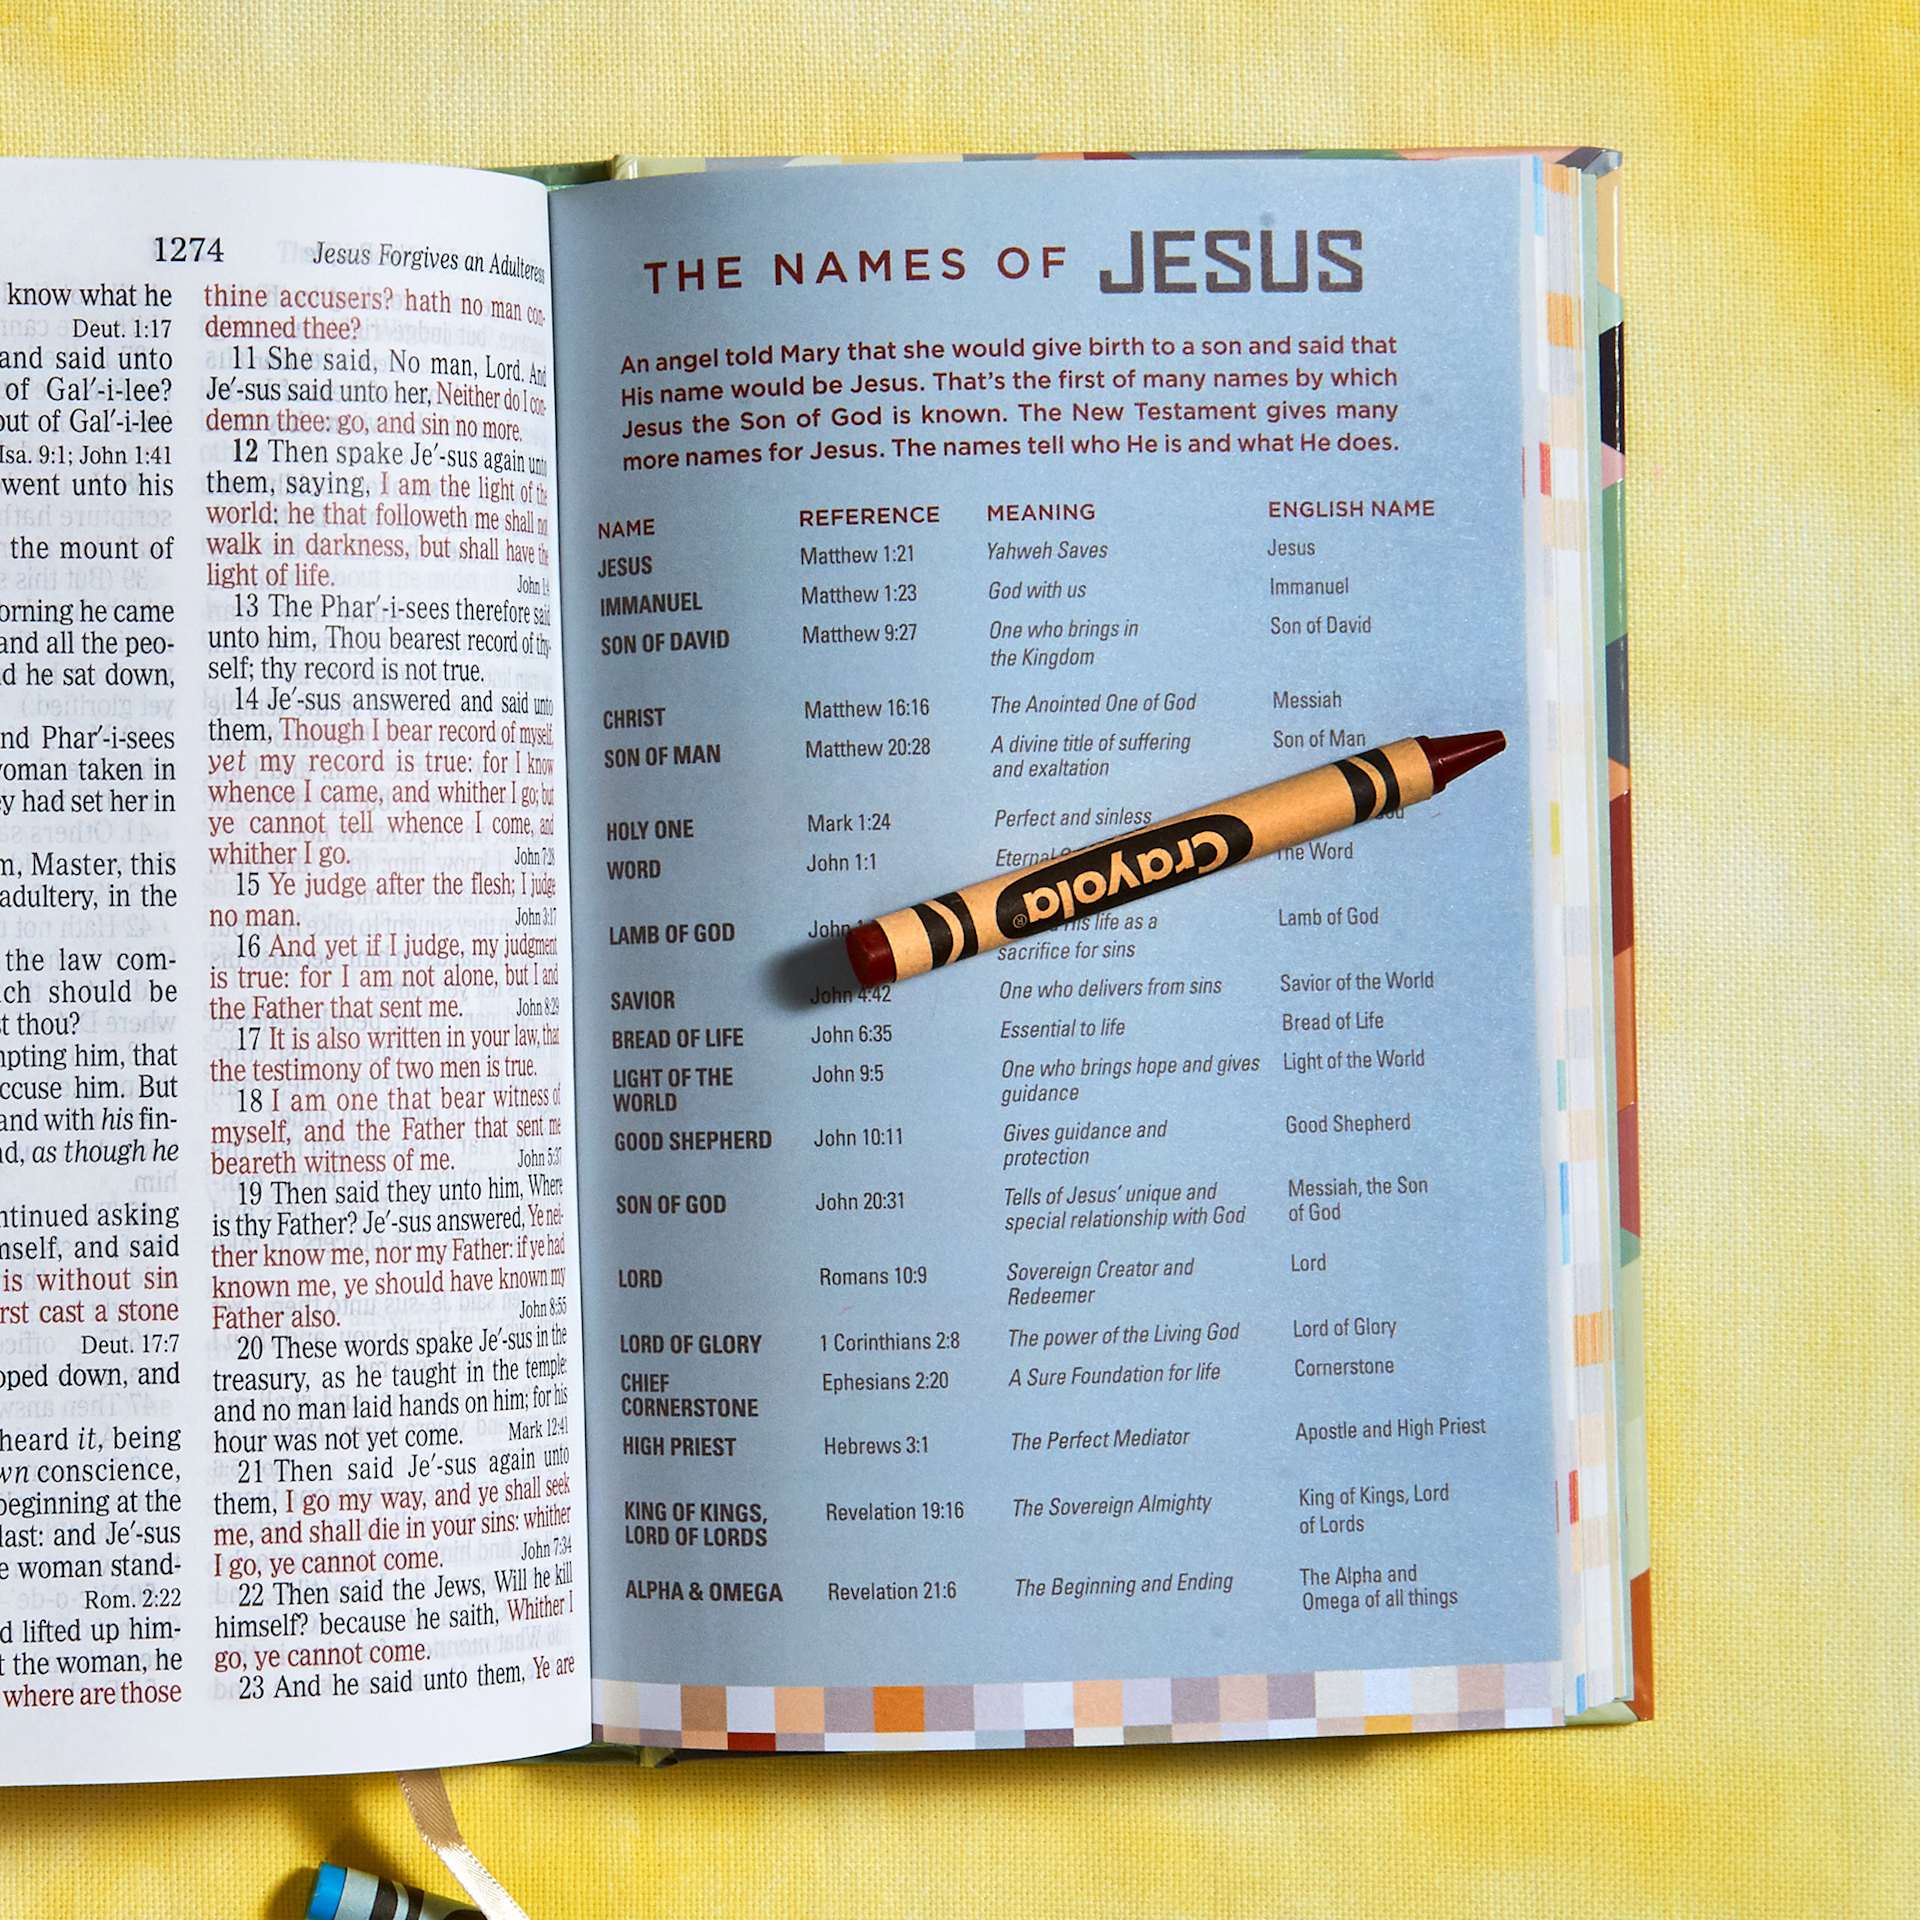 know what he
Deut. 1:17
and said unto
of Gal′-i-lee?
out of Gal′-i-lee
Isa. 9:1; John 1:41
went unto his
the mount of
he came
and all the peo-
he sat down,
Phar′-i-sees
taken in
had set her in
Master, this
adultery, in the
the law com-
should be
thou?
him, that
him. But
and with his fin-
as though he
asking
and said
is without sin
cast a stone
Deut. 17:7
down, and
heard it, being
conscience,
beginning at the
last: and Je′-sus
woman stand-
Rom. 2:22
lifted up him-
the woman, he
where are those
1274 Jesus Forgives an Adulteress
thine accusers? hath no man con-
demned thee?
11 She said, No man, Lord. And
Je′-sus said unto her, Neither do I con-
demn thee: go, and sin no more.
12 Then spake Je′-sus again unto
them, saying, I am the light of the
world: he that followeth me shall not
walk in darkness, but shall have the
light of life. John 1:4
13 The Phar′-i-sees therefore said
unto him, Thou bearest record of thy-
self; thy record is not true.
14 Je′-sus answered and said unto
them, Though I bear record of myself,
yet my record is true: for I know
whence I came, and whither I go; but
ye cannot tell whence I come, and
whither I go. John 7:28
15 Ye judge after the flesh; I judge
no man. John 3:17
16 And yet if I judge, my judgment
is true: for I am not alone, but I and
the Father that sent me. John 8:29
17 It is also written in your law, that
the testimony of two men is true.
18 I am one that bear witness of
myself, and the Father that sent me
beareth witness of me. John 5:37
19 Then said they unto him, Where
is thy Father? Je′-sus answered, Ye nei-
ther know me, nor my Father: if ye had
known me, ye should have known my
Father also. John 8:55
20 These words spake Je′-sus in the
treasury, as he taught in the temple:
and no man laid hands on him; for his
hour was not yet come. Mark 12:41
21 Then said Je′-sus again unto
them, I go my way, and ye shall seek
me, and shall die in your sins: whither
I go, ye cannot come. John 7:34
22 Then said the Jews, Will he kill
himself? because he saith, Whither I
go, ye cannot come.
23 And he said unto them, Ye are
THE NAMES OF JESUS
An angel told Mary that she would give birth to a son and said that
His name would be Jesus. That's the first of many names by which
Jesus the Son of God is known. The New Testament gives many
more names for Jesus. The names tell who He is and what He does.
NAME REFERENCE MEANING ENGLISH NAME
JESUS Matthew 1:21 Yahweh Saves Jesus
IMMANUEL Matthew 1:23 God with us Immanuel
SON OF DAVID Matthew 9:27 One who brings in Son of David
the Kingdom
CHRIST Matthew 16:16 The Anointed One of God Messiah
SON OF MAN Matthew 20:28 A divine title of suffering Son of Man
and exaltation
HOLY ONE Mark 1:24 Perfect and sinless
WORD John 1:1 Eternal The Word
LAMB OF GOD John life as a Lamb of God
sacrifice for sins
Crayola®
SAVIOR John 4:42 One who delivers from sins Savior of the World
BREAD OF LIFE John 6:35 Essential to life Bread of Life
LIGHT OF THE John 9:5 One who brings hope and gives Light of the World
WORLD guidance
GOOD SHEPHERD John 10:11 Gives guidance and Good Shepherd
protection
SON OF GOD John 20:31 Tells of Jesus' unique and Messiah, the Son
special relationship with God of God
LORD Romans 10:9 Sovereign Creator and Lord
Redeemer
LORD OF GLORY 1 Corinthians 2:8 The power of the Living God Lord of Glory
CHIEF Ephesians 2:20 A Sure Foundation for life Cornerstone
CORNERSTONE
HIGH PRIEST Hebrews 3:1 The Perfect Mediator Apostle and High Priest
KING OF KINGS, Revelation 19:16 The Sovereign Almighty King of Kings, Lord
LORD OF LORDS of Lords
ALPHA & OMEGA Revelation 21:6 The Beginning and Ending The Alpha and
Omega of all things